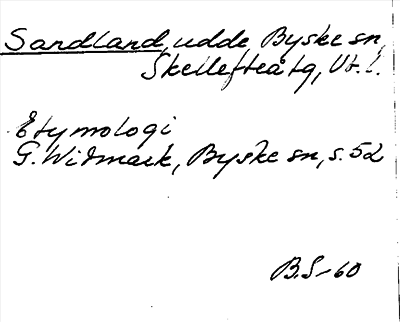 Sandland, udde, Byske sn,
Skellefteå tg, Vb. l.
Etymologi
G. Widmark, Byske sn, s. 52
B.S-60